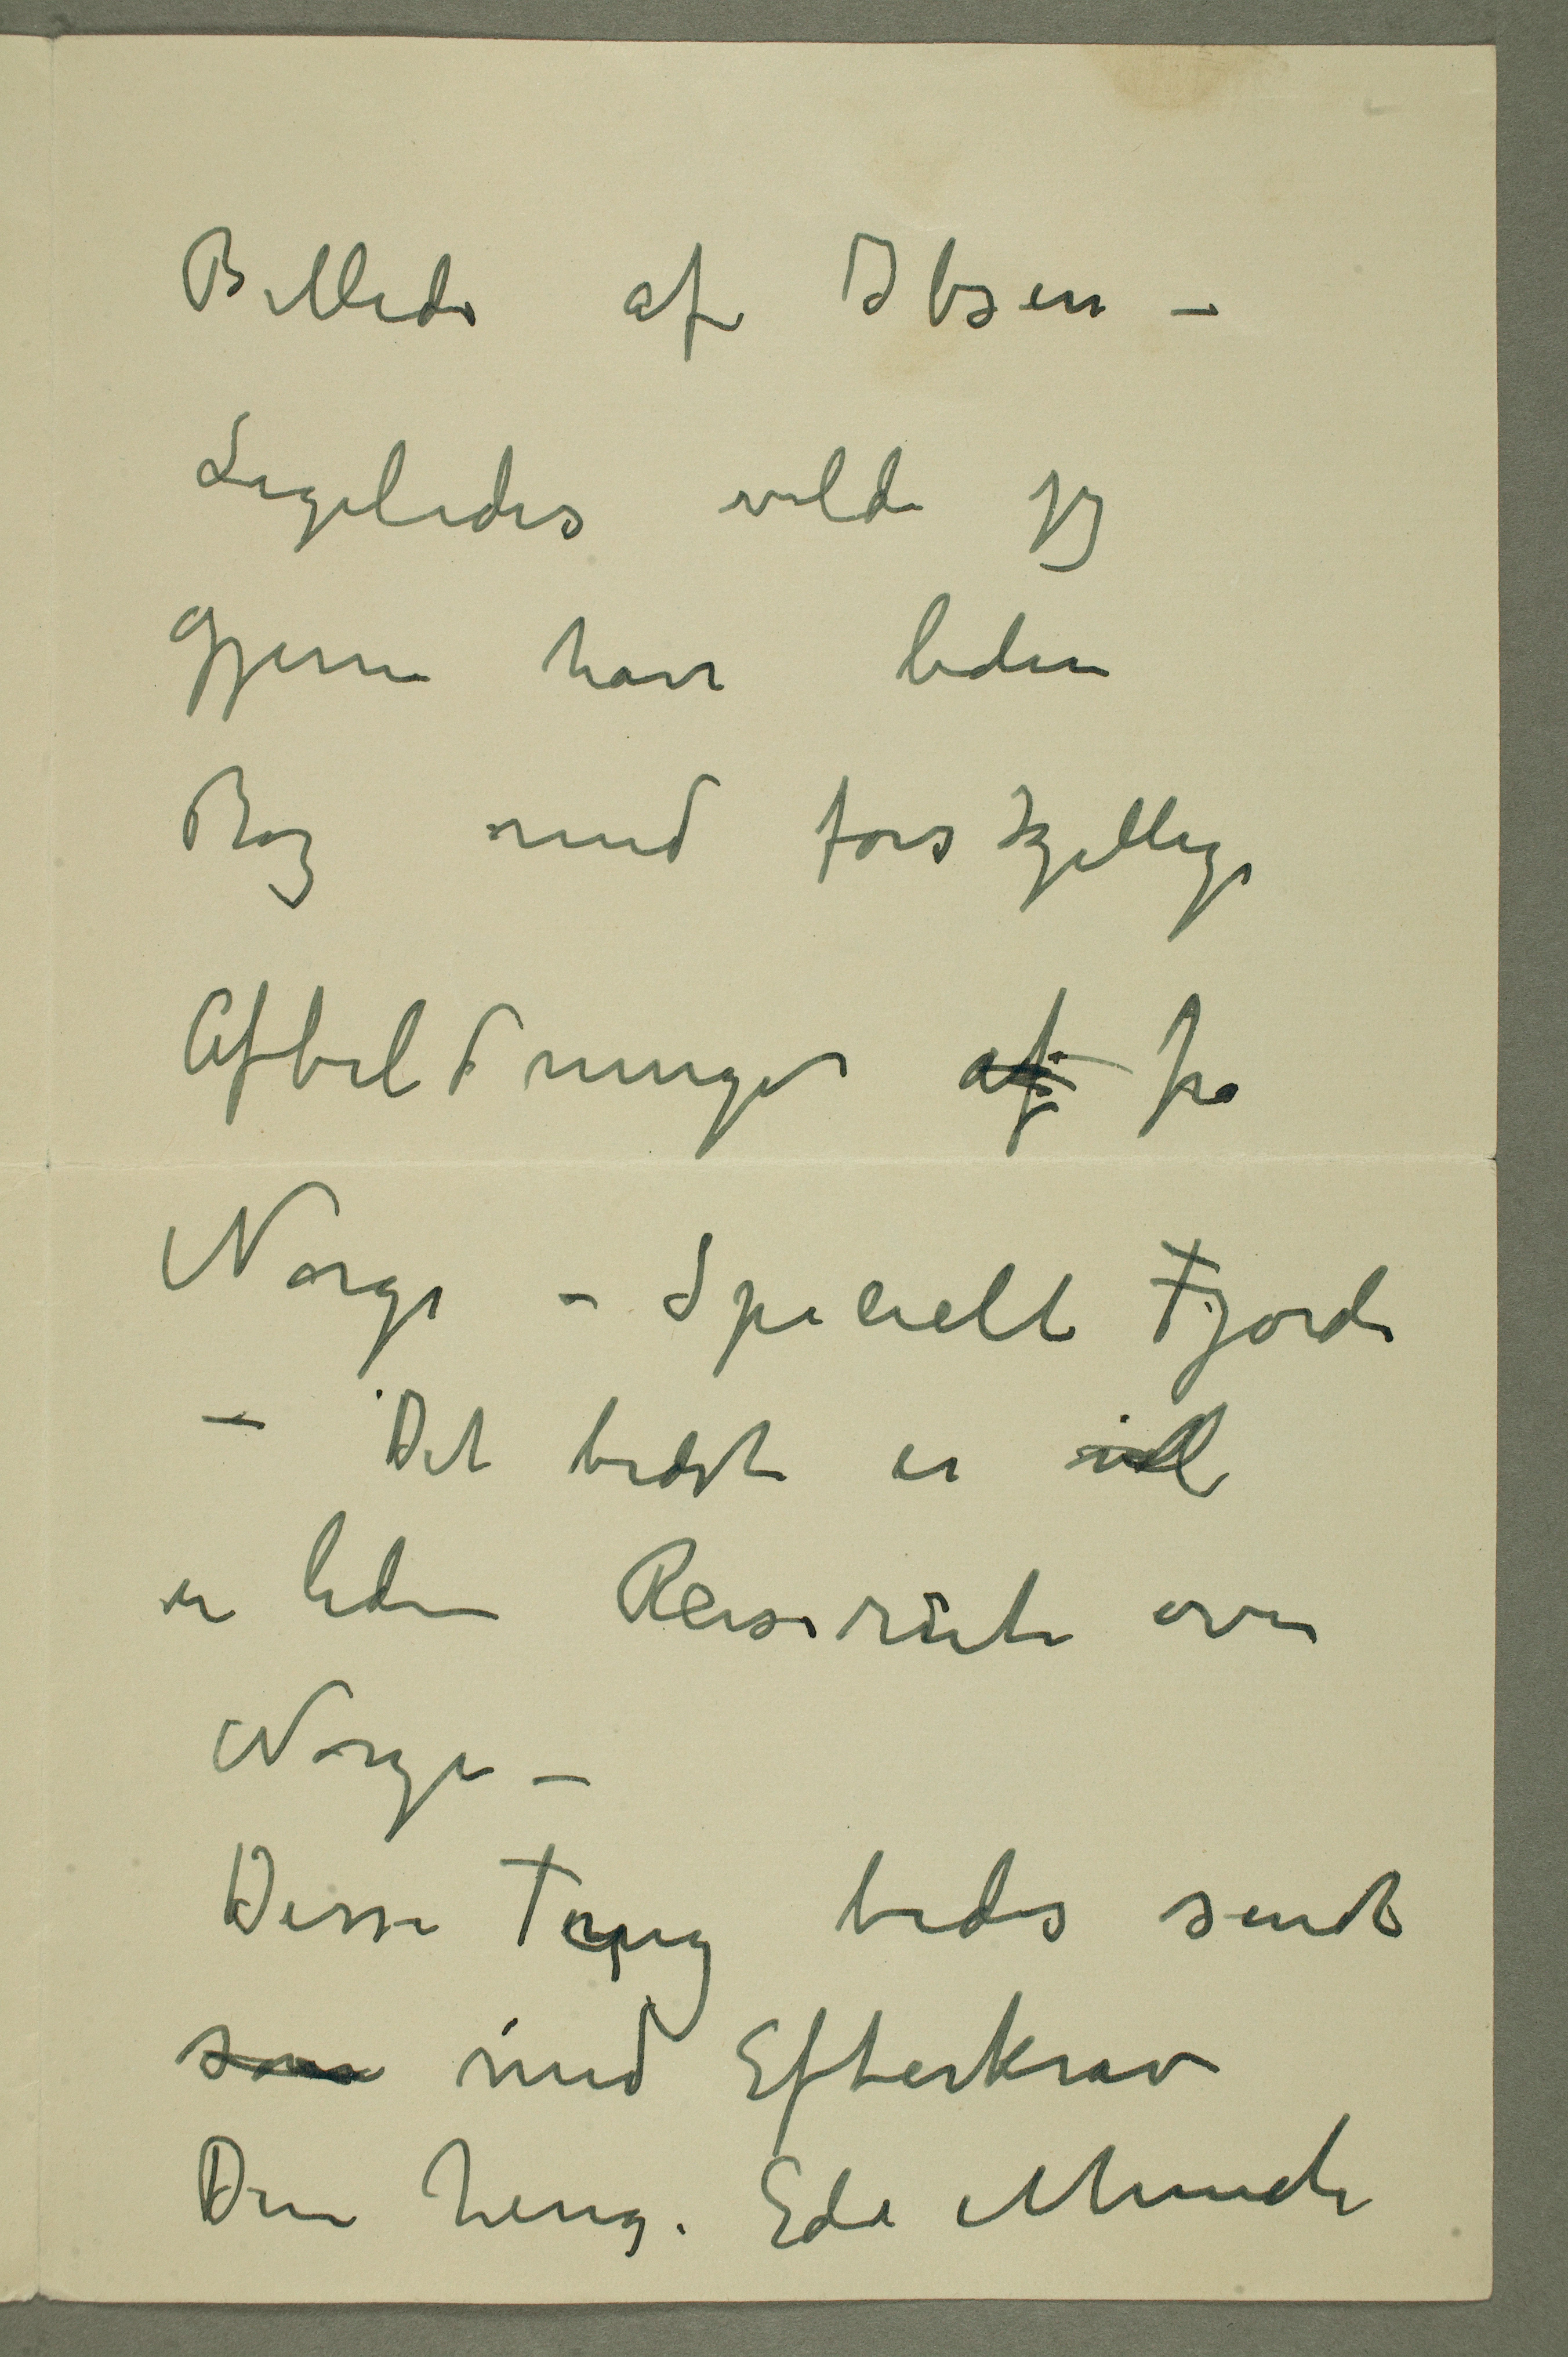 Billede af Ibsen –
Ligeledes vilde jeg
gjerne have liden
Bog med forskjellige
Afbildninger af fra
Norge – Specielt Fjorde
– Det bedste er vel
en liden Reiserute over
Norge –
Disse Ting bedes sendt
som med Efterkrav
Din heng. Edv Munch